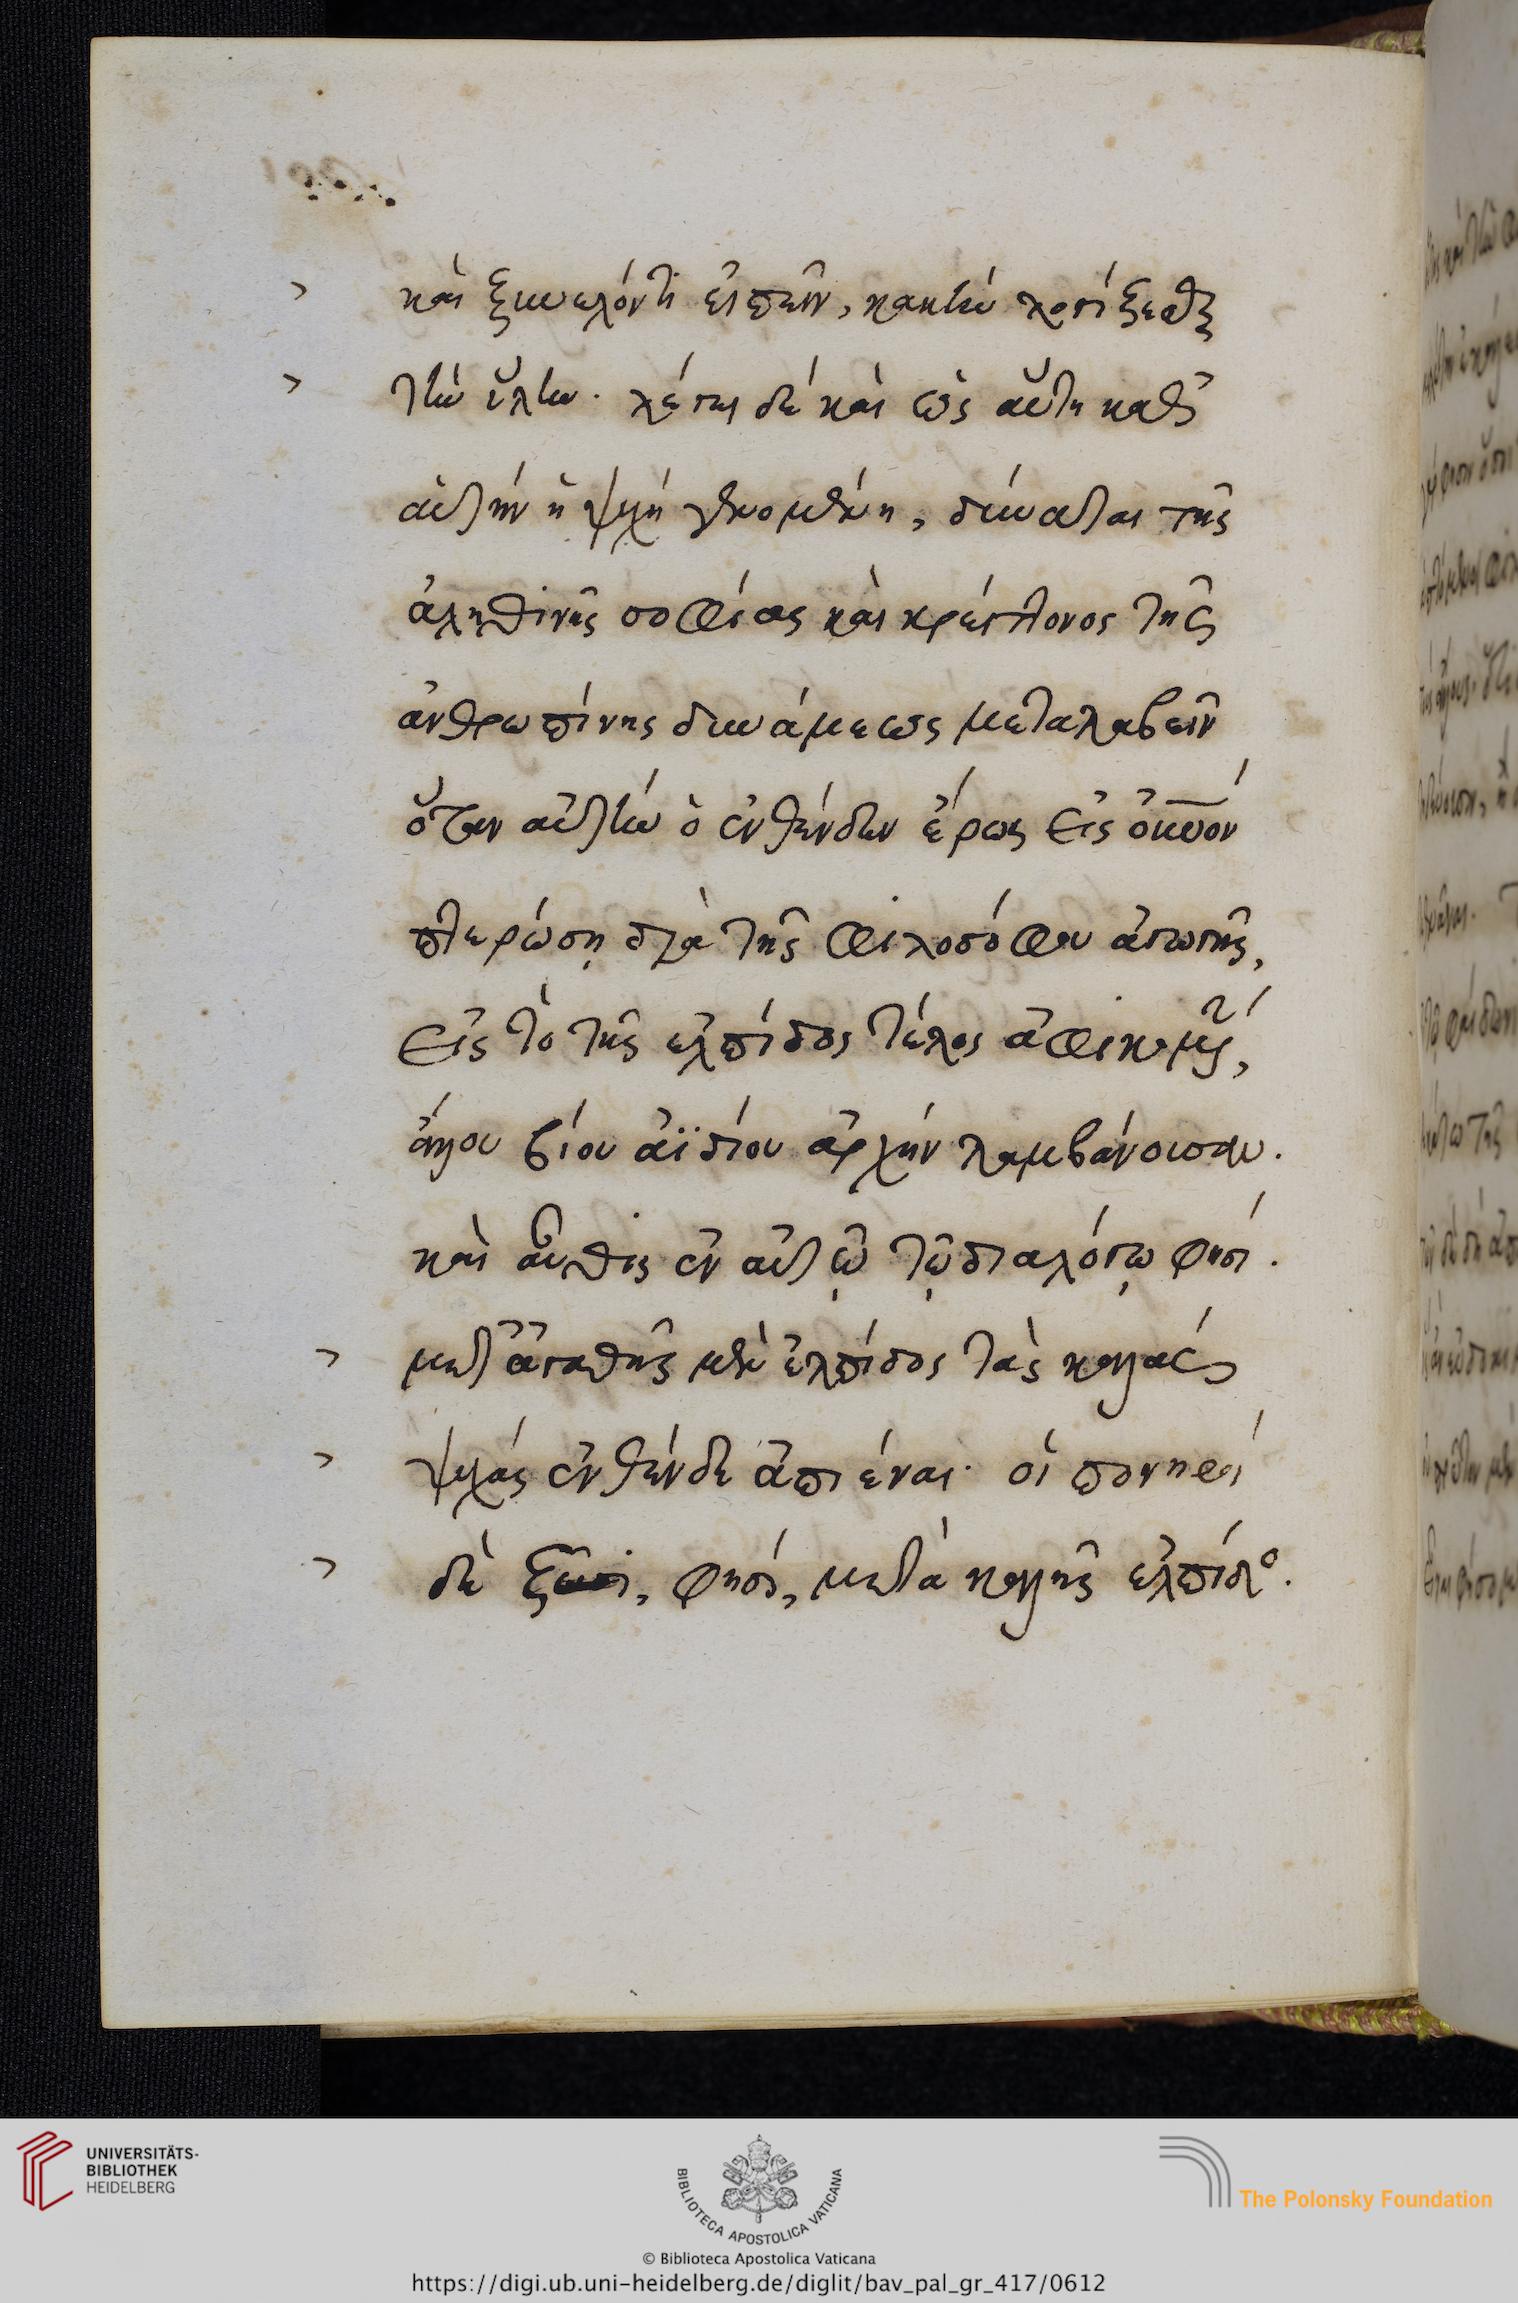 καὶ ξυνελόντι εἰπεῖν, κακὴν χρηίξεσθαι
τὴν ὕλην. λέγει δὲ καὶ ὡς αὕτη καθ᾽
αὑτὴν ἡ ψυχὴ γενομένη, δύναται τῆς
ἀληθινῆς σοφίας καὶ κρείττονος τῆς
ἀνθρωπίνης δυνάμεως μεταλαβεῖν
ὅταν αὐτὴν ὁ ἐνθένδεν ἔρως εἰς
πτερώσῃ διὰ τῆς φιλοσόφου ἀγωγῆς,
εἰς τὸ τῆς ἐλπίδος τέλος ἀφικομένην,
ἄλλου βίου ἀϊδίου ἀρχὴν λαμβάνουσαν.
καὶ αὖθις ἐν αὐτῷ τῷ διαλόγῳ φησί.
μετ᾽ ἀγαθῆς μὲν ἐλπίδος τὰς καλὰς
ψυχὰς ἐνθένδε ἀπιέναι. οἱ πονηροὶ
δὲ ζῶσι, φησί, μετὰ κακῆς ἐλπίδος.
UNIVERSITÄTS-
BIBLIOTHEK
HEIDELBERG
BIBLIOTECA APOSTOLICA VATICANA
The Polonsky Foundation
© Biblioteca Apostolica Vaticana
https://digi.ub.uni-heidelberg.de/diglit/bav_pal_gr_417/0612